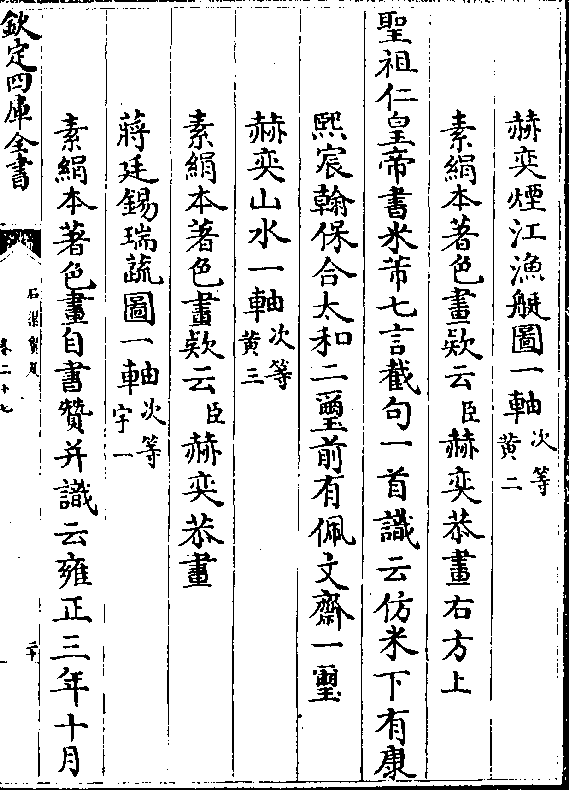 赫奕煙江漁艇圖一軸次等黃二
素絹本著色畫欵云臣赫奕恭畫右方上
聖祖仁皇帝書米芾七言截句一首識云仿米下有康
熙宸翰保合太和二璽前有佩文齋一璽
赫奕山水一軸次等黃三
素絹本著色畫欵云臣赫奕恭畫
蔣廷錫瑞蔬圖一軸次等字一
素絹本著色畫自書贊并識云雍正三年十月
欽定四庫全書
石渠寶笈
卷二十七
二十